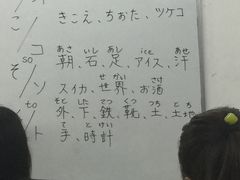 こ
きこえ、ちぉた、ツケコ
コ
so
あさ いし あし ice あせ
朝、石、足、アイス、汗
そ
ソ
せかい さけ
スイカ、世界、お酒
to
そと した てつ くつ つち とち
外、下、鉄、靴、土、土地
と
ト
て とけい
手、時計